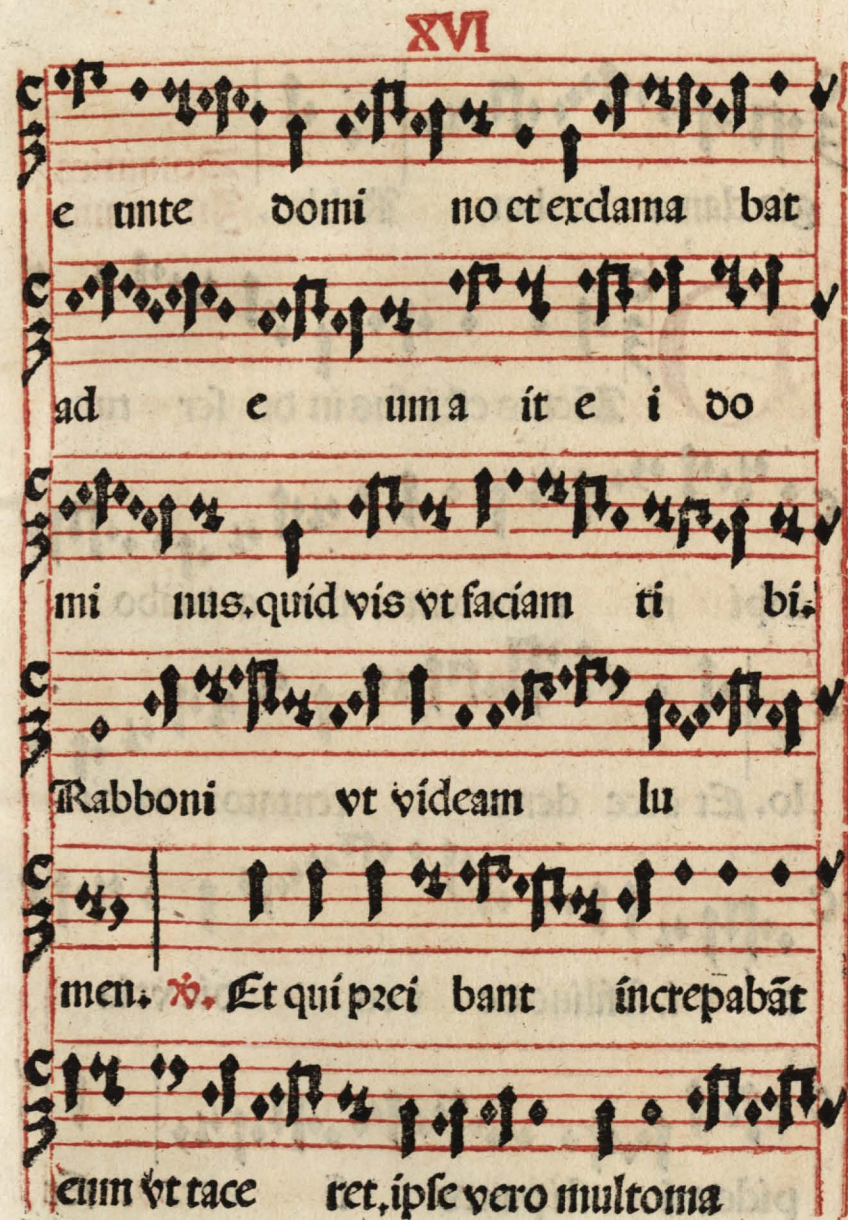 XVI
e unte domi no et exclama bat
ad e um a it e i do
mi nus. quid vis vt faciam ti bi.
Rabboni vt videam lu
men. ℣. Et qui prei bant increpabãt
eum vt tace ret. ipse vero multo ma